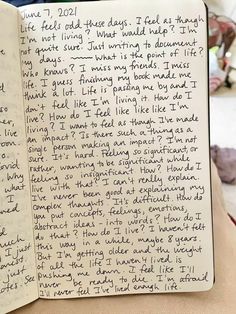 June 7, 2021
Life feels odd these days. I feel as though
I'm not living? What would help? I'm
not quite sure. Just writing to document
my days. What is the point of life?
Who knows? I miss my friends. I miss
life. I guess finishing my book made me
think a lot. Life is passing me by and I
don't feel like I'm living it. How do I
live? How do I feel like like like I'm
living? I want to feel as though I've made
an impact? Is there such a thing as a
single person making an impact? I'm not
sure. It's hard. Feeling so significant, or
rather, wanting to be significant while
feeling so insignificant. How? How do I
live with that? I can't really explain.
I've never been good at explaining my
complex thoughts. It's difficult. How do
you put concepts, feelings, emotions,
abstract ideas - into words? How do I
do that? How do I live? I haven't felt
this way in a while, maybe 8 years.
But I'm getting older and the weight
of all the life I haven't lived is
pushing me down. I feel like I'll
never be ready to die. I'm afraid
I'll never feel I've lived enough life